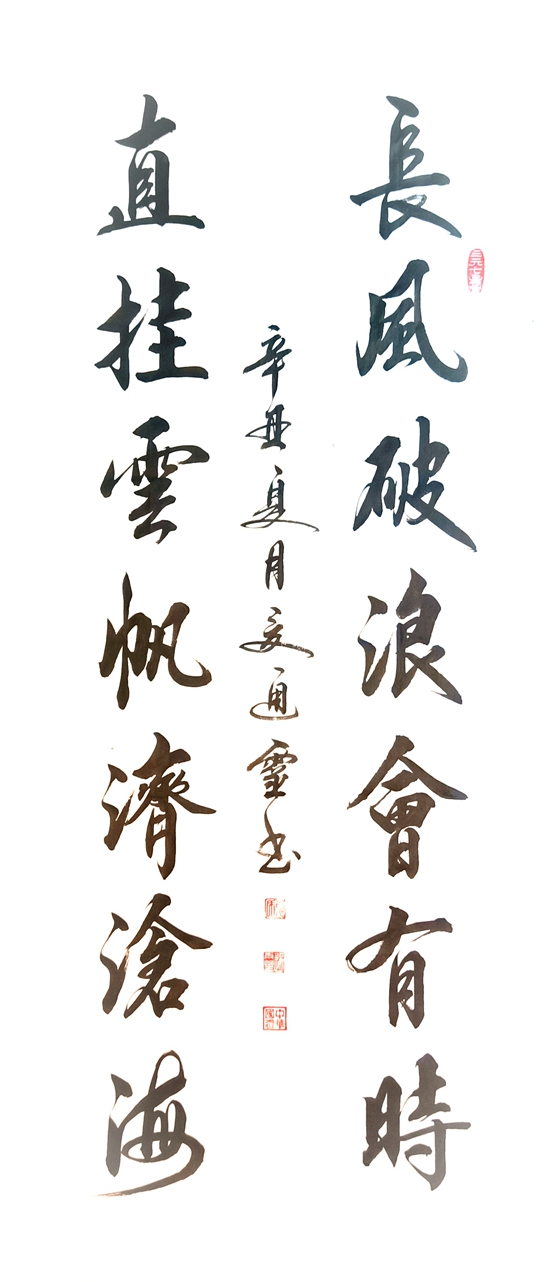 長風破浪會有時
直挂雲帆濟滄海
辛丑夏月通靈书